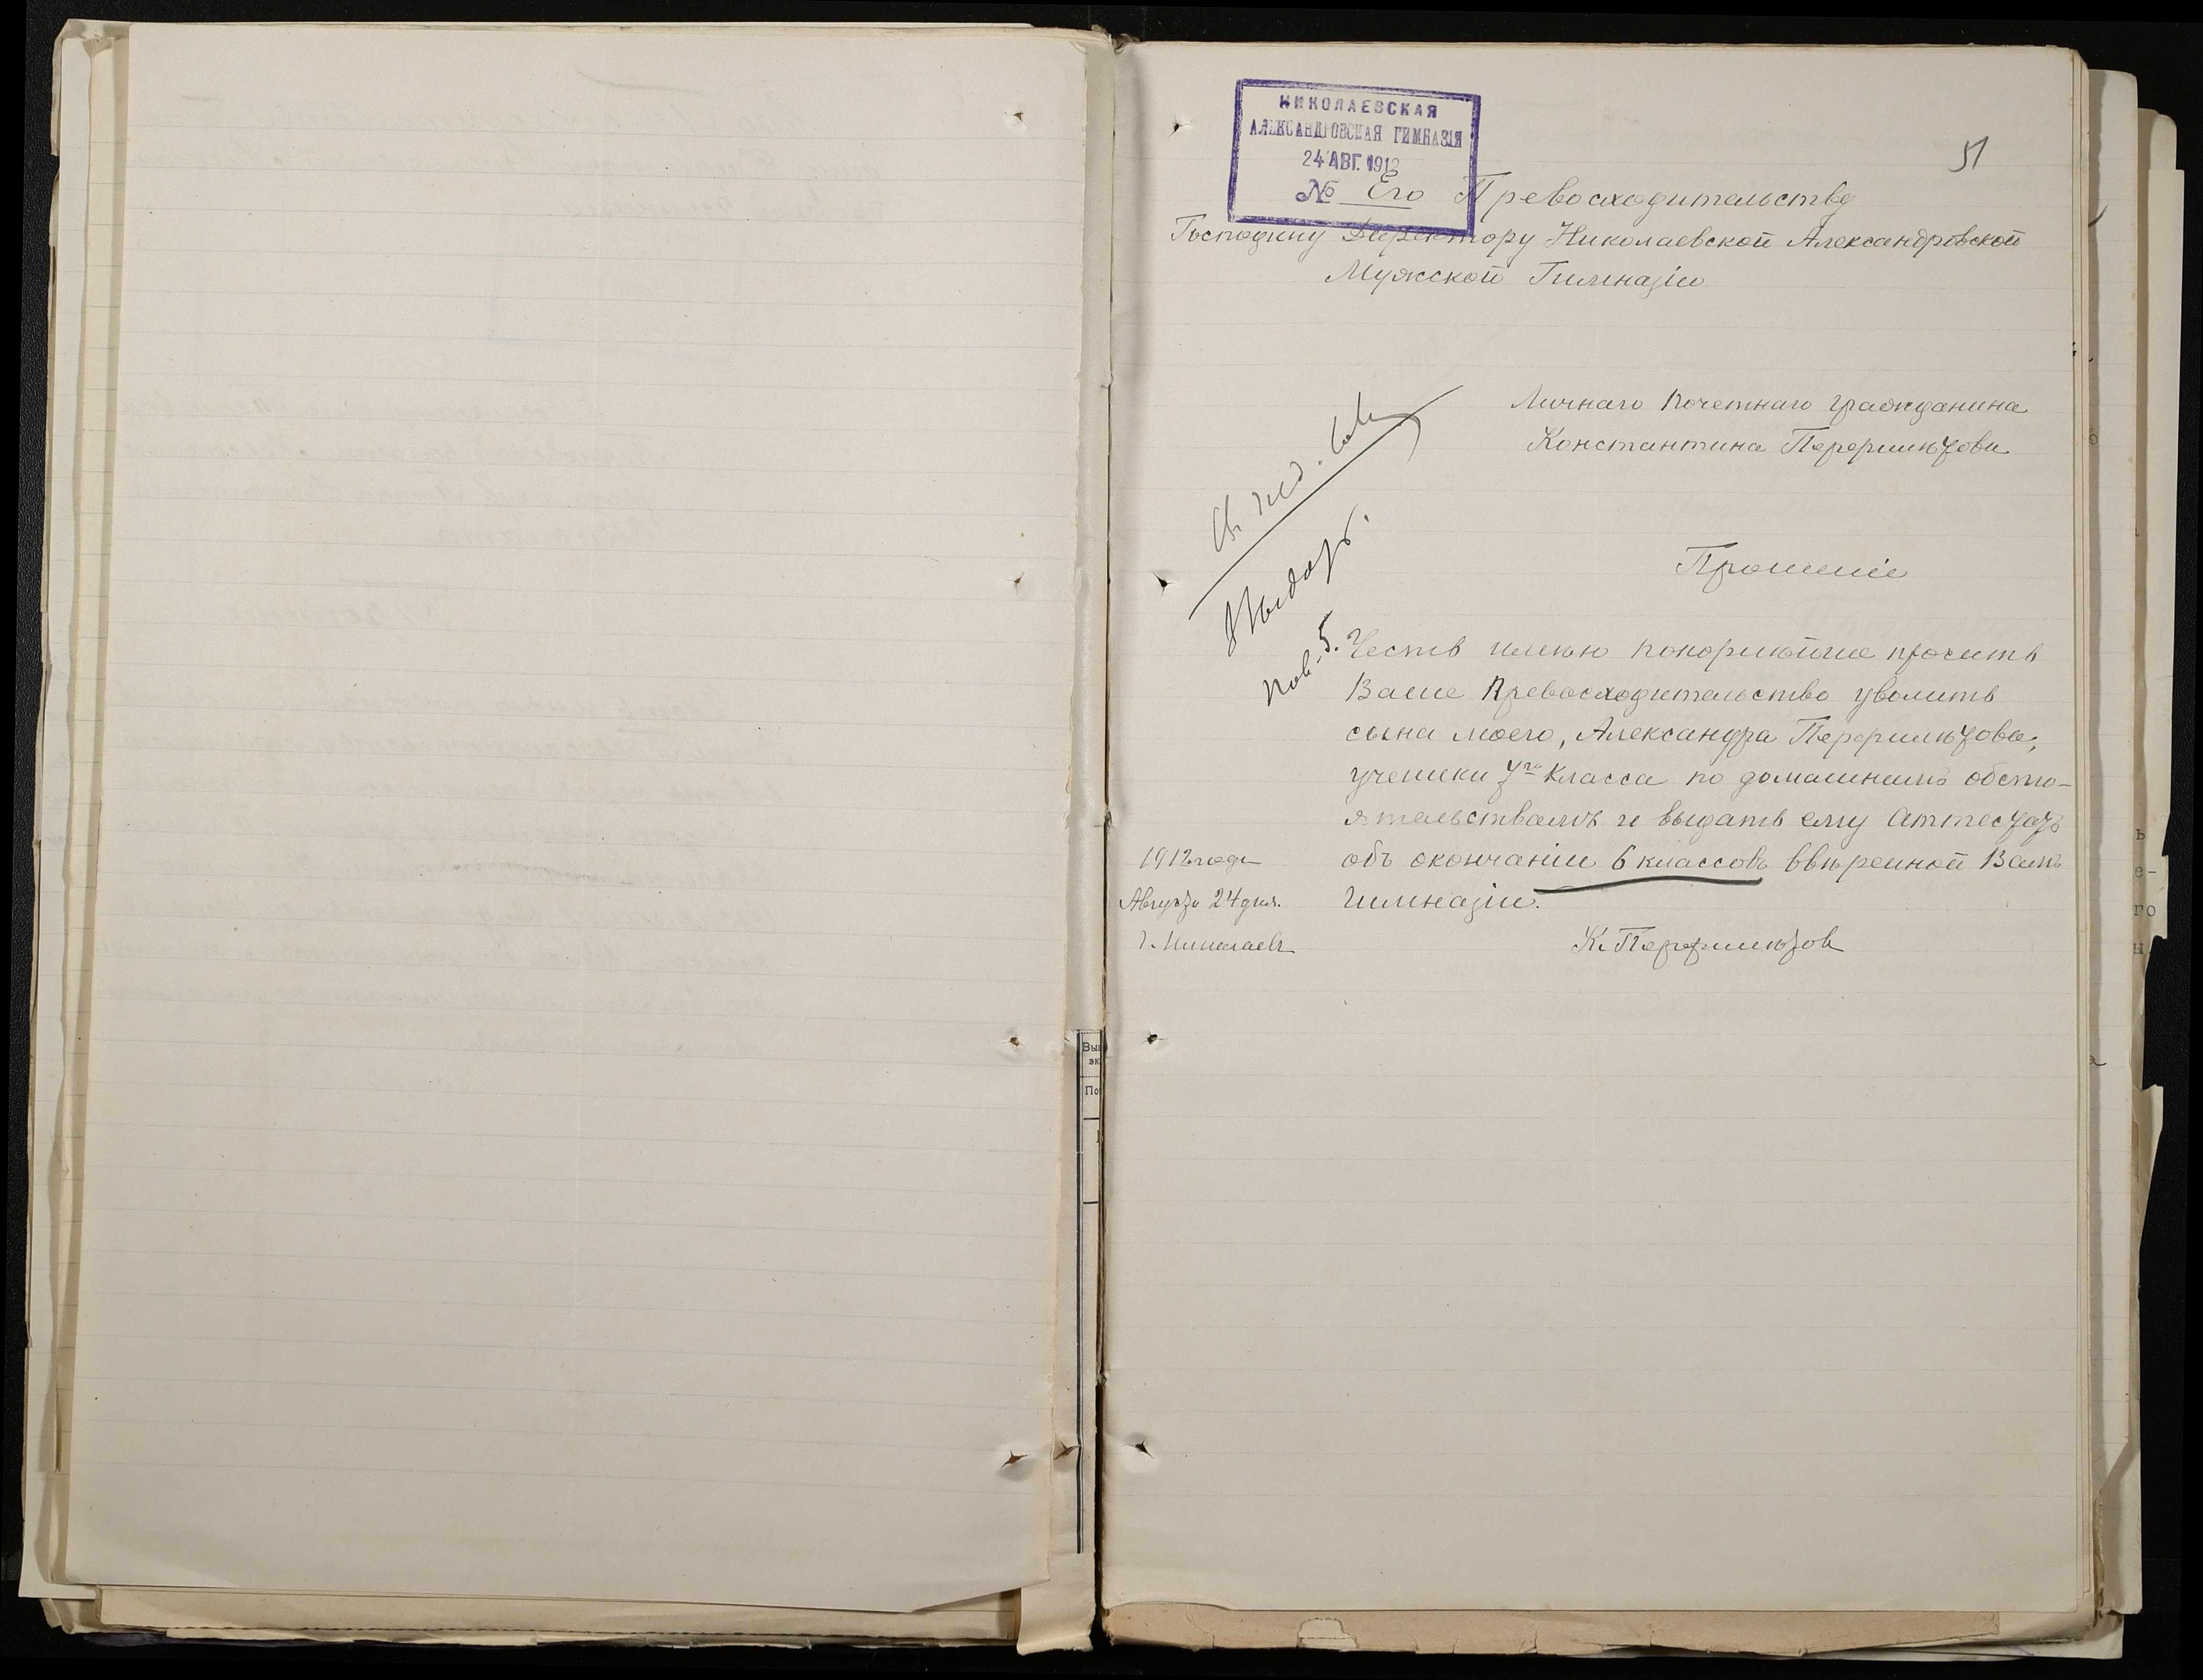 НИКОЛАЕВСКАЯ
АЛЕКСАНДРОВСКАЯ ГИМНАЗІЯ
24 АВГ. 1912
№
51
Его Превосходительству
Господину Директору Николаевской Александровской
Мужской Гимназіи
Личнаго Почетнаго Гражданина
Константина
Прошеніе
Честь имѣю покорнѣйше просить
Ваше Превосходительство уволить
сына моего, Александра
ученика 7го класса по домашнимъ обсто-
ятельствамъ и выдать ему Аттестатъ
объ окончаніи 6 классовъ ввѣренной Вамъ
гимназіи.
1912 года
Августа 24 дня.
г. Николаевъ